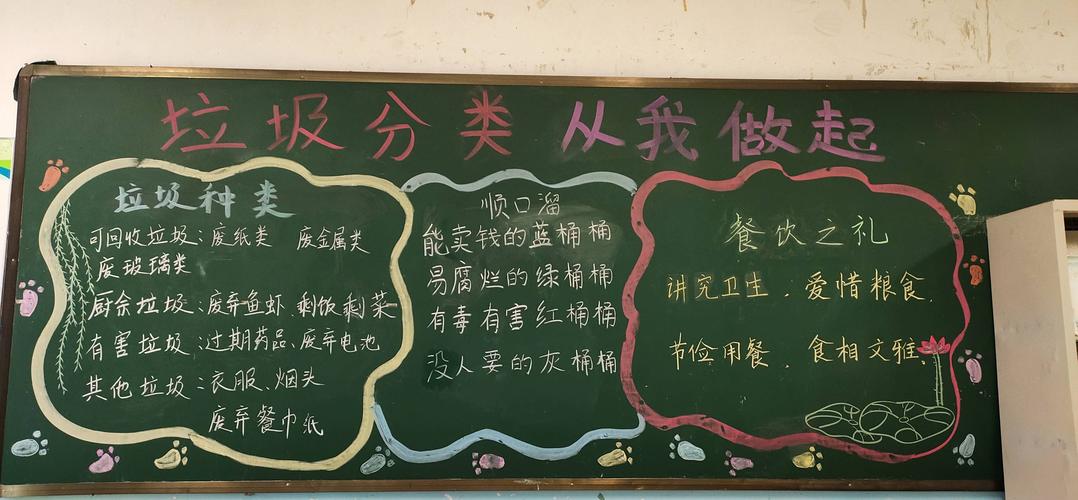 垃圾分类 从我做起
垃圾种类
可回收垃圾:废纸类 废金属类
废玻璃类
厨余垃圾:废弃鱼虾、剩饭剩菜
有害垃圾:过期药品、废弃电池
其他垃圾:衣服、烟头
废弃餐巾纸
顺口溜
能卖钱的蓝桶桶
易腐烂的绿桶桶
有毒有害红桶桶
没人要的灰桶桶
餐饮之礼
讲究卫生、爱惜粮食、
节俭用餐、食相文雅.